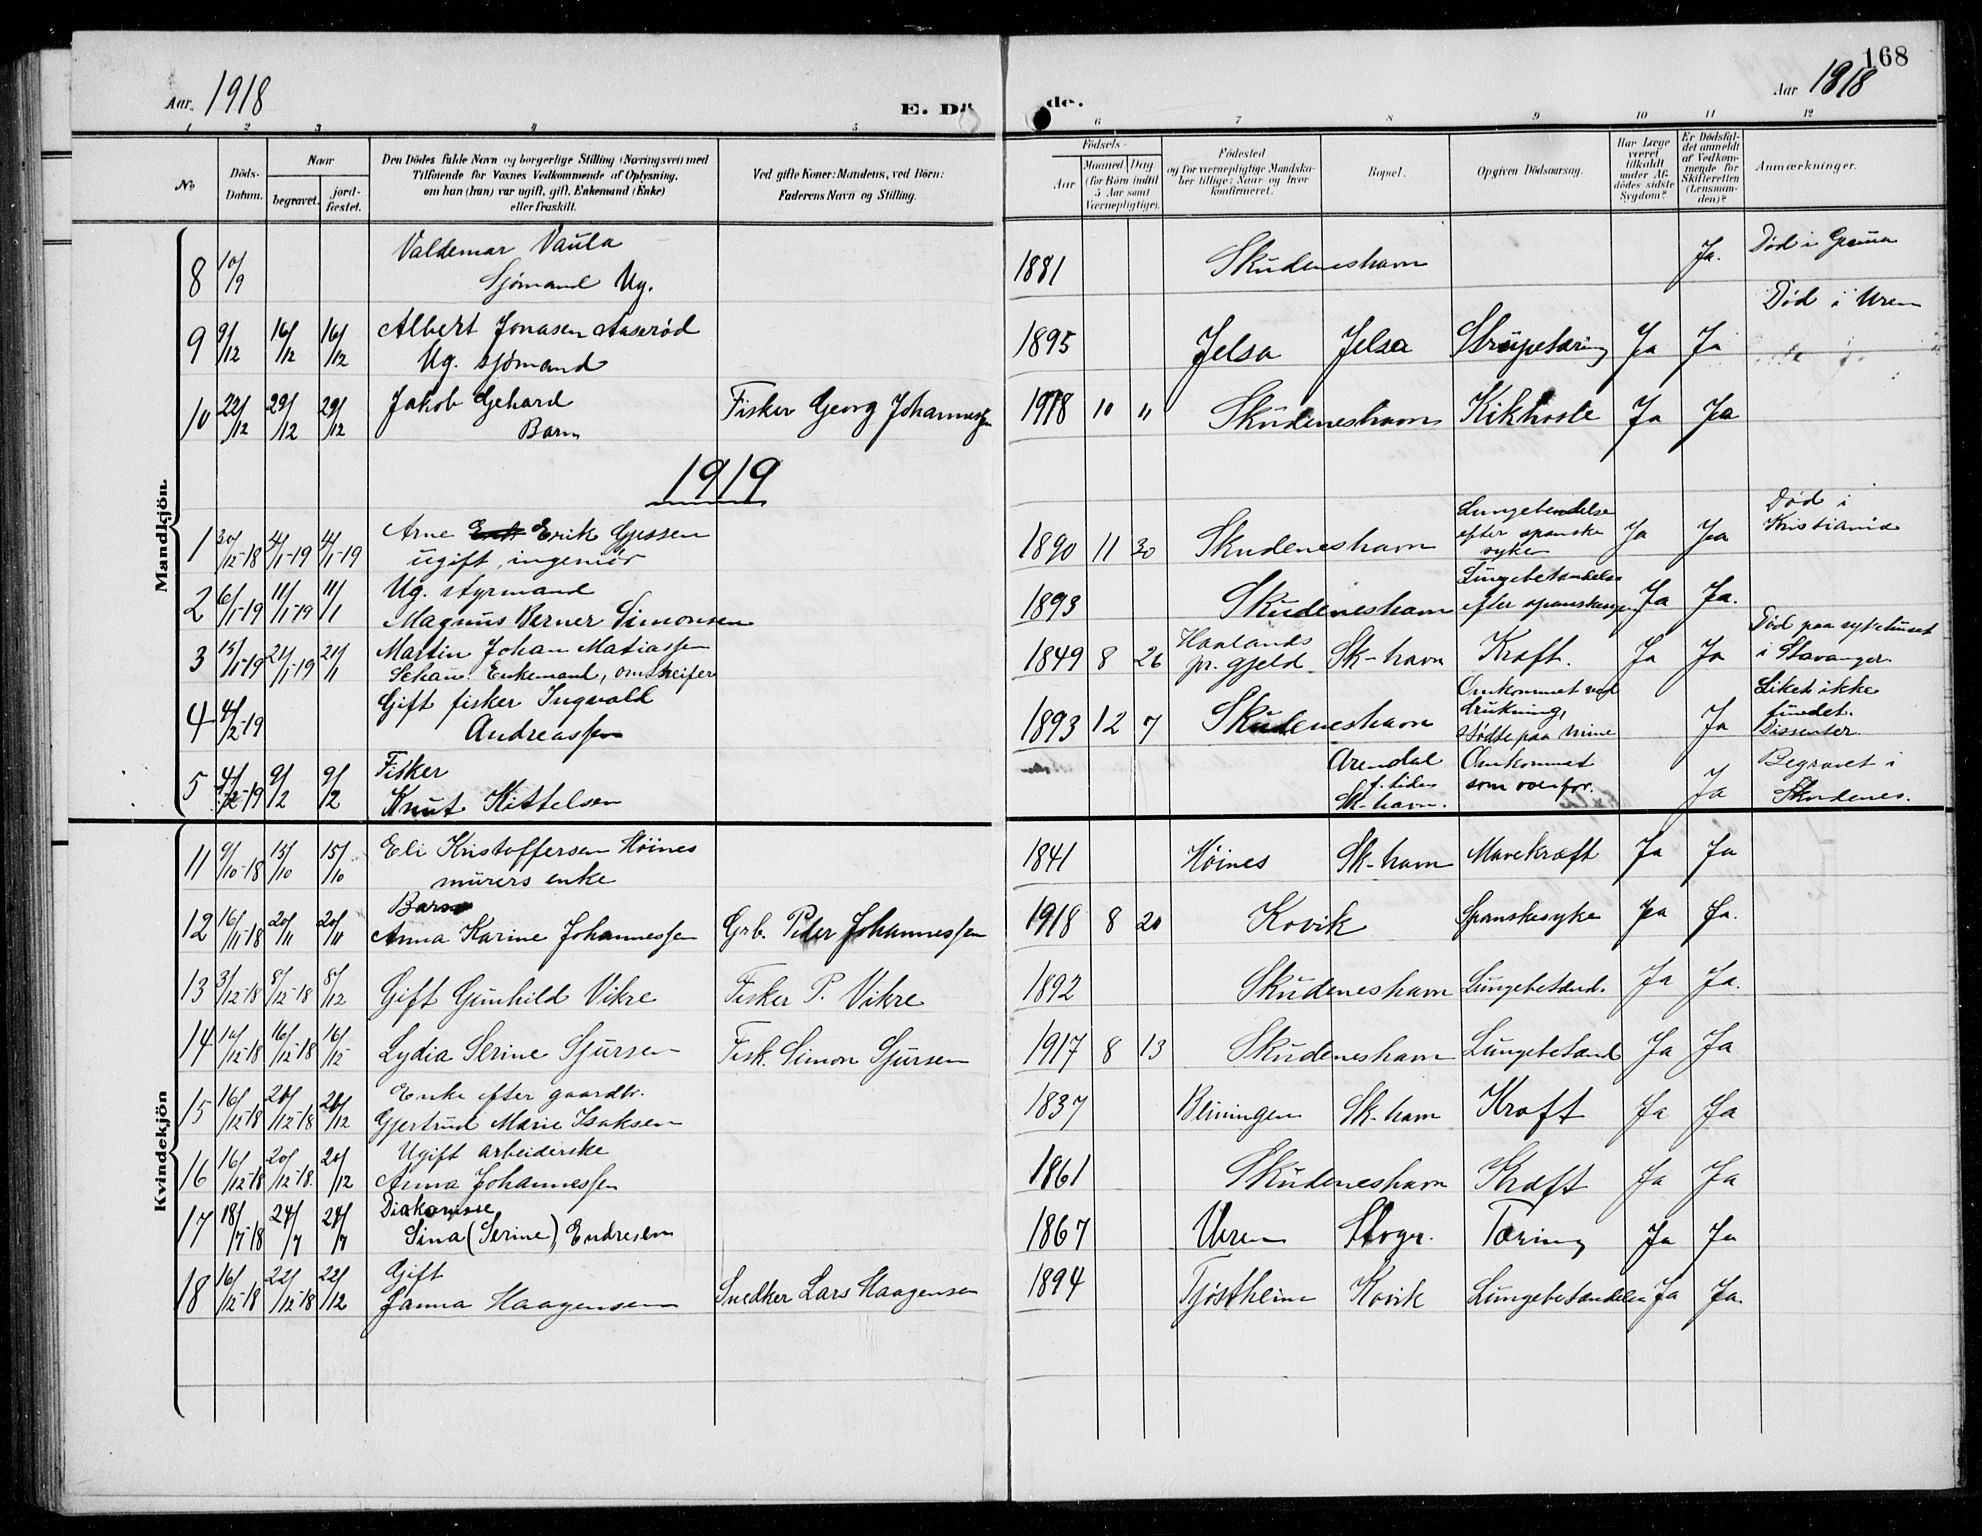 168
Aar. 1918
E. Dö de.
Aar 1918
1 2 3 4 5 6 7 8 9 10 11 12
No
Döds-Datum.
Naar
begravet.
jord-fæstet.
Den Dödes fulde Navn og borgerlige Stilling (Næringsvei) med
Tilföiende for Voxnes Vedkommende af Oplysning,
om han (hun) var ugift, gift, Enkemand (Enke)
eller fraskilt.
Ved gifte Koner: Mandens, ved Börn:
Faderens Navn og Stilling.
Födsels-
Aar
Maaned Dag
(for Börn indtil
5 Aar samt
Værnepligtige).
Födested
og for værnepligtige Mandska-
ber tillige: Naar og hvor
konfirmeret.
Bopæl.
Opgiven Dödsaarsag.
Har Læge
været
tilkaldt
under Af-
dödes sidste
Sygdom?
Er Dödsfal-
det anmeldt
af Vedkom-
mende for
Skifteretten
(Lensman-
den)?
Anmærkninger.
Mandkjön.
8 10/9 Valdemar Vaula
Sjömand Ug.
1881 Skudeneshavn Ja. Död i
9 9/12 16/12 16/12 Albert Jonasen Aaseröd
Ug. sjömand
1895 Jelsa Jelsa Strupetæring Ja Ja Död i Uren
10 22/12 29/12 29/12 Jakob Gehard
Barn
Fisker Georg Johannessen 1918 10 11 Skudeneshavn Kikhoste Ja Ja
1919
1 30/12-18 4/1-19 4/1-19 Arne Erik Gjessen
ugift, ingeniör
1890 11 30 Skudeneshavn Lungebetendelse
efter spanske
syke
Ja Ja Död i
Kristiania
2 6/1-19 11/1-19 11/1 Ug. styrmand
Magnus Berner Simonsen
1893 Skudeneshavn Lungebetændelse
efter spanskesyke Ja Ja.
3 15/1-19 21/1-19 21/1 Martin Johan Matiassen
Schau. Enkemand, omstreifer
1849 8 26 Haalands
pr. gjeld Sk-havn Kræft. Ja Ja Död paa sykehuset
i Stavanger
4 4/2-19 Gift fisker Ingvald
Andreassen
1893 12 7 Skudeneshavn Omkommet ved
drukning,
stödte paa mine
Ja Liket ikke
fundet.
Dissenter
5 4/2-19 9/2 9/2 Fisker
Knut Kittelsen
Arendal
f. tiden
Sk-havn. Omkommet
som ovenfor. Ja Begravet i
Skudenes.
Kvindekjön
11 9/10-18 15/10 15/10 Eli Kristoffersen Höines
murers enke
1841 Höines Sk-havn Mavekræft Ja Ja
12 16/11-18 20/11 20/11 Barn
Anna Karine Johannessen Grb. Peder Johannessen 1918 8 20 Kovik Spanskesyke Ja Ja.
13 3/12-18 8/12-18 8/12 Gift Gunhild Vikre Fisker P. Vikre 1892 Skudeneshavn Lungebetænd. Ja Ja.
14 10/12-18 16/12-18 16/12 Lydia Serine Sjursen Fisk. Simon Sjursen 1917 8 13 Skudeneshavn Lungebetænd Ja Ja
15 16/12-18 20/12-18 20/12 Enke efter gaardbr.
Gjertrud Marie Isaksen
1837 Sk-havn Kræft Ja Ja
16 16/12-18 20/12-18. 20/12 Ugift arbeiderske
Anna Johannessen
1861 Skudeneshavn Kræft Ja Ja
17 18/7-18 24/7 24/7 Diakonisse
Sina (Serine) Endresen
1867 Uren Stvgr. Tæring Ja Ja
18 16/12-18 22/12-18 22/12 Gift
Janna Haagensen Snedker Lars Haagensen 1894 Tjöstheim Kovik Lungebetændelse Ja Ja.